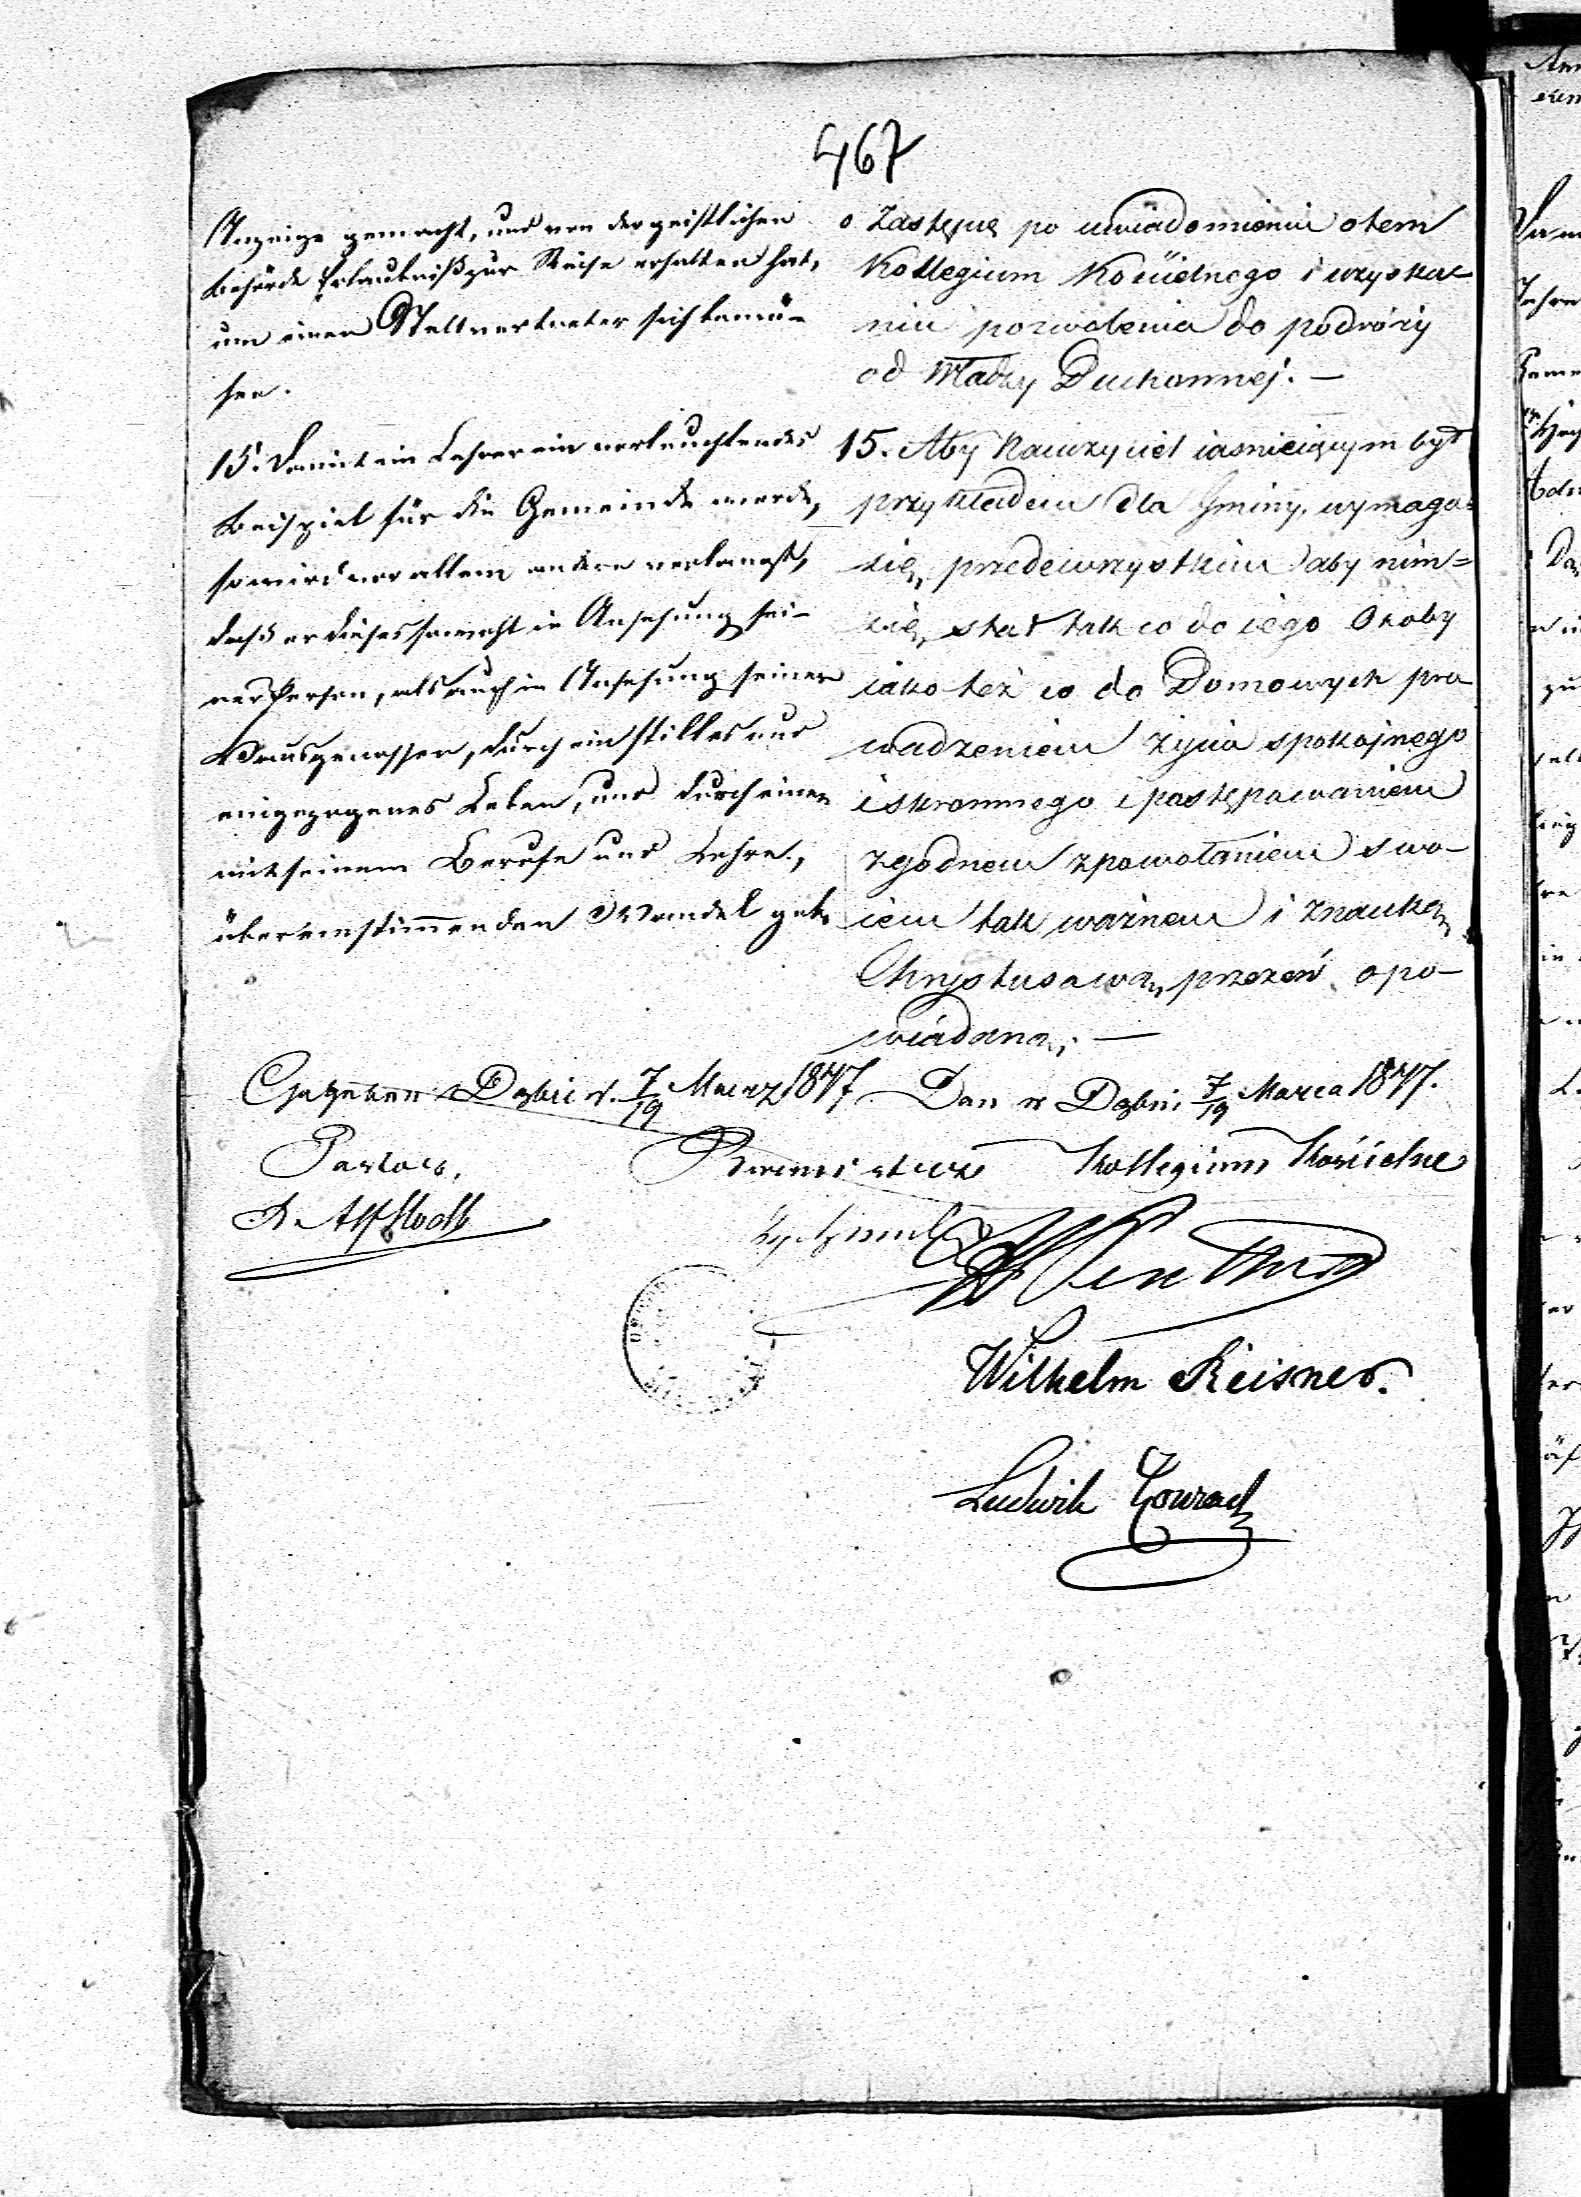 467
Anzeige gemacht, und von der geistlichen
Behörde Erlaubniß zur Reise erhalten hat,
um einen Stellvertreter sich bemü-
hen.
15. Damit ein Lehrer ein vorleuchtendes
Beispiel für die Gemeinde werde,
so wird vor allem andern verlangt,
daß er dieses sowohl in Ansehung sei-
ner Person, als auch in Ansehung seiner
Hausgenossen, durch ein stilles und
eingezogenes Leben, und durch einen
mit seinem Berufe und Lehre,
übereinstimmenden Wandel gebe
o Zastępcę po uwiadomieniu o tem
Kollegium Kościelnego i uzyska-
niu pozwolenia do podróży
od Władzy Duchownej. —
15. Aby Nauczyciel iaśnieiącym był
przykładem dla Gminy, wymaga
się, przedewszystkiem aby nim=
się, stał tak co do iego Osoby
iako też co do Domowych pro
wadzeniem życia spokojnego
i skromnego i postępowaniem
zgodnem z powołaniem swo-
iem tak ważnem i z nauką
Chrystusową, przezeń opo-
wiadaną. —
Gegeben Dąbie d. 7/19 Maerz 1847
Dan w Dąbiu 7/19 Marca 1847.
Pastor,
Kollegium Kościelne
Wilhelm Reisner.
Ludwik Conrad